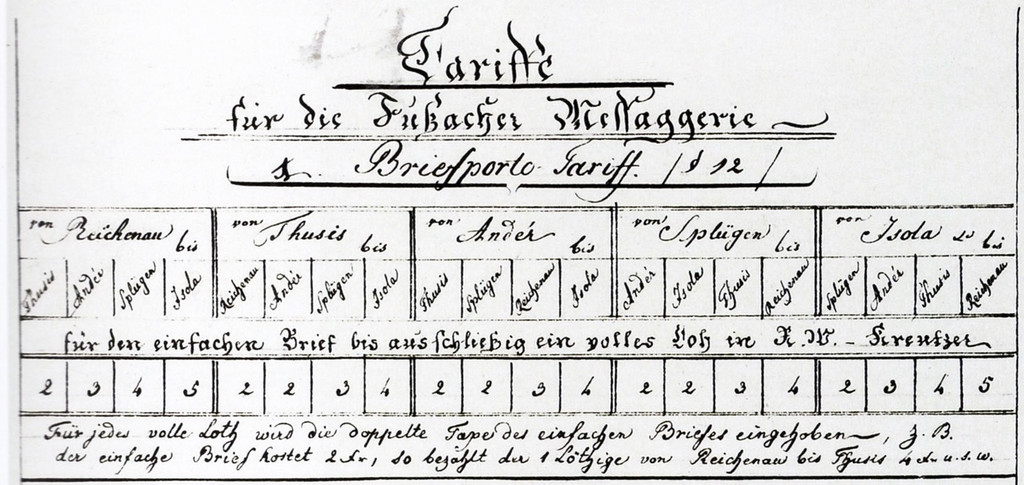 Tariffe
für die Fußacher Messaggerie
1. Briefporto-Tariff. / § 12 /
von Reichenau bis von Thusis bis von Andér bis von Splügen bis von Isola bis
Thusis Andér Splügen Isola Reichenau Andér Splügen Isola Thusis Splügen Reichenau Isola Andér Isola Thusis Reichenau Splügen Andér Thusis Reichenau
für den einfachen Brief bis ausschließig ein volles Loth in R.W. - Kreutzer
2 3 4 5 2 2 3 4 2 2 3 4 2 2 3 4 2 3 4 5
Für jedes volle Loth wird die doppelte Taxe des einfachen Briefes eingehoben, z.B.
der einfache Brief kostet 2 Xr, so bezahlt der 1 Löthige von Reichenau bis Thusis 4 Xr u.s.w.